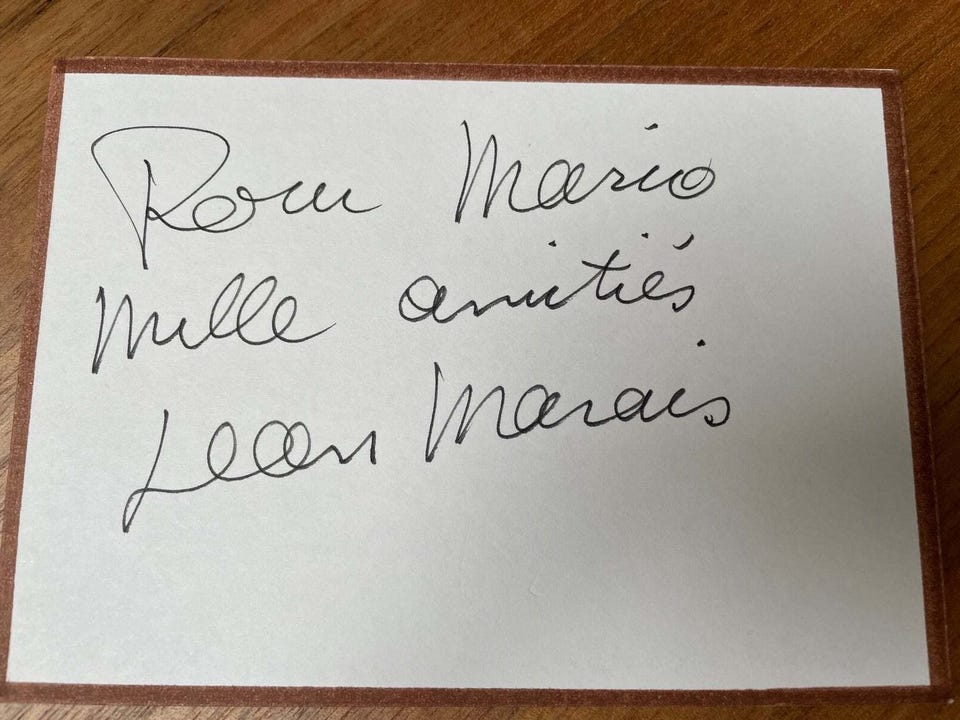 Pour Mario
Mille amitiés
Jean Marais